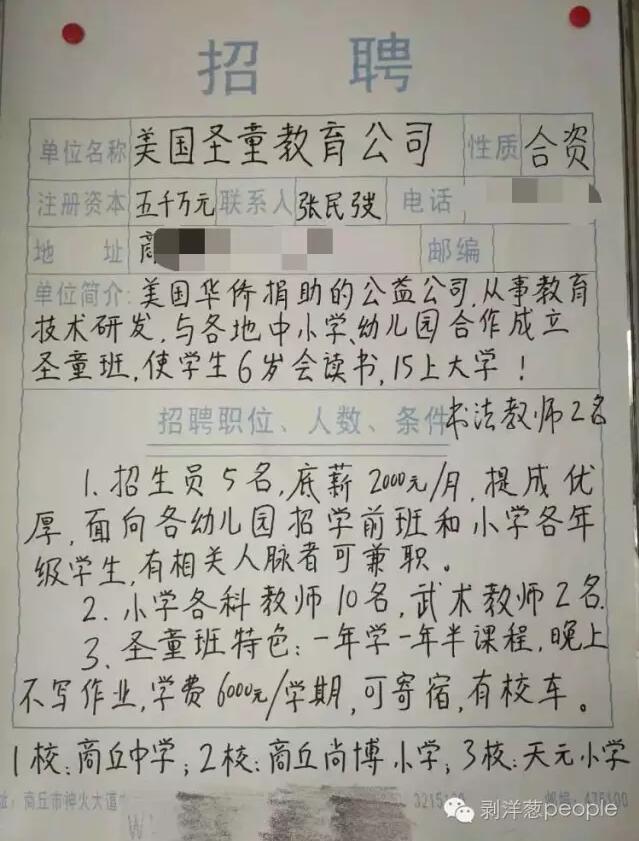 招 聘
单位名称 美国圣童教育公司 性质 合资
注册资本 五千万元 联系人 张民弢 电话
地 址 商 邮编
单位简介: 美国华侨捐助的公益公司,从事教育
技术研发,与各地中小学、幼儿园合作成立
圣童班,使学生6岁会读书,15上大学!
招聘职位、人数、条件 书法教师2名
1.招生员5名,底薪2000元/月,提成优
厚,面向各幼儿园招学前班和小学各年
级学生,有相关人脉者可兼职。
2.小学各科教师10名,武术教师2名.
3.圣童班特色:一年学一年半课程,晚上
不写作业,学费6000元/学期,可寄宿,有校车。
1校:商丘中学;2校:商丘尚博小学;3校:天元小学
址:商丘市神火大道 3215 邮编:475100
W
剥洋葱people